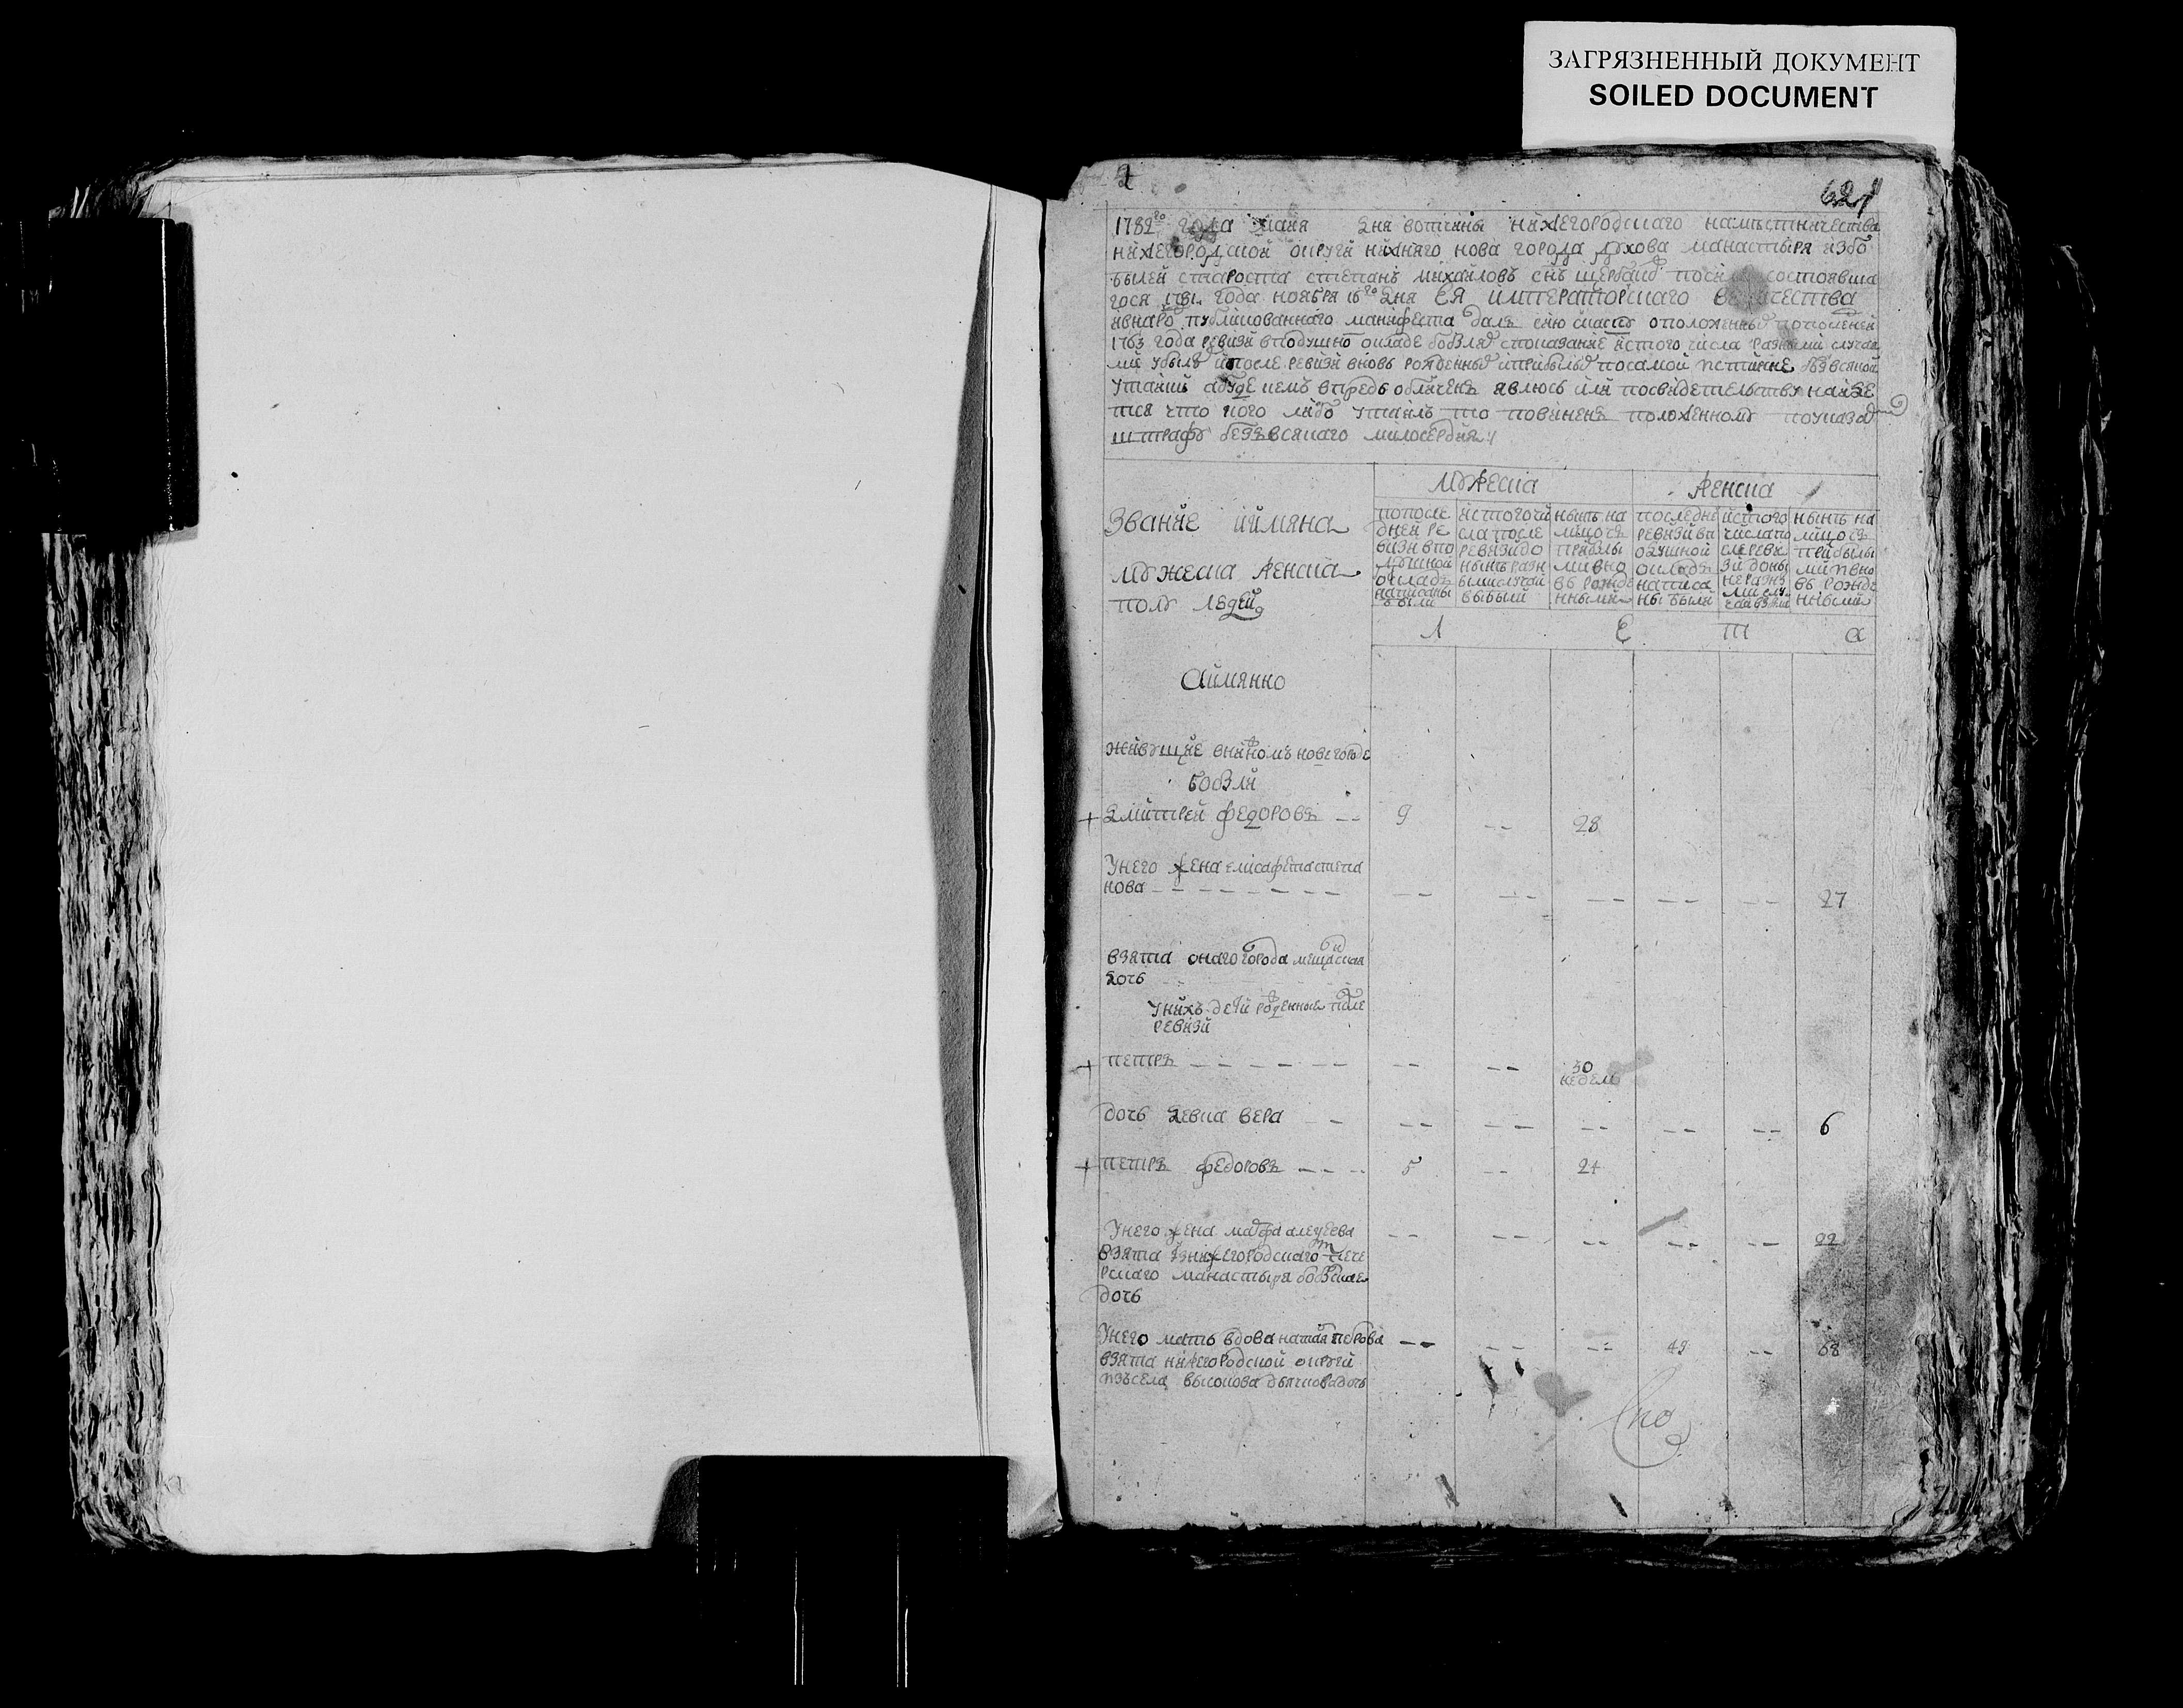 ЗАГРЯЗНЕННЫЙ ДОКУМЕНТ
SOILED DOCUMENT
2
621
1782го года маия дня вотчины нижегородскаго намѣстничества
нижегородской округи нижняго нова города духова манастыря избо
былей староста степанъ михайловъ снъ посил состоявша
гося 1781 года ноября 16го дня ЕЯ императорскаго величества
ивнаро публикованнаго манифеста далъ сию скаску оположенных попоследней
1763 года ревизи вподушно окладе бобыляхъ спокázание истого числа разными случаи
ми убылыхъ ипосле ревизи вновь рожденныхъ иприбылыхъ посамой истинне безвсякой
утайки абуде чемъ впредь обличенъ явлюсь или посвидетельству найде
тся что кого либо утаилъ то повиненъ положенному поуказамъ
штрафу безвсякаго милосердия
Звание иимяна
мужеска женска
полу людей
Мужеска
Женска
попосле
дней ре
визи впо
душной
окладъ
написаны
были
истогочи
сла после
ревизидо
нынѣ разн
ымислучаи
выбыли
нынѣ на
лицо съ
прибылы
ми вно
въ рожде
нными
последне
ревизи вп
одушной
окладъ
написа
ны были
истого
числапо
сле реви
зи доны
не разны
ми слу
нынѣ на
лицо съ
прибылы
ми вно
въ рожде
нными
Л е т а
Аимянно
живущие внижномъ новегороде
бобыли
+ Дмитрей федоровъ -- 9 -- 28
Унего жена елисафета степа
нова -- -- -- -- -- -- 27
взята онаго города мещанская
дочь
Унихъ дети рожденные после
ревизи
+ петръ -- -- -- 30
недель
дочь девка вера -- -- -- -- -- -- 6
+ петръ федоровъ -- 5 -- 24
Унего жена марфа алексеева -- -- -- -- -- 22
взята изнижегородскаго пече
рскаго манастыря бобылская
дочь
Унего мать вдова наталья петрова -- -- -- 49 -- 68
взята нижегородской округи
изъсела высокова дьячковадочь